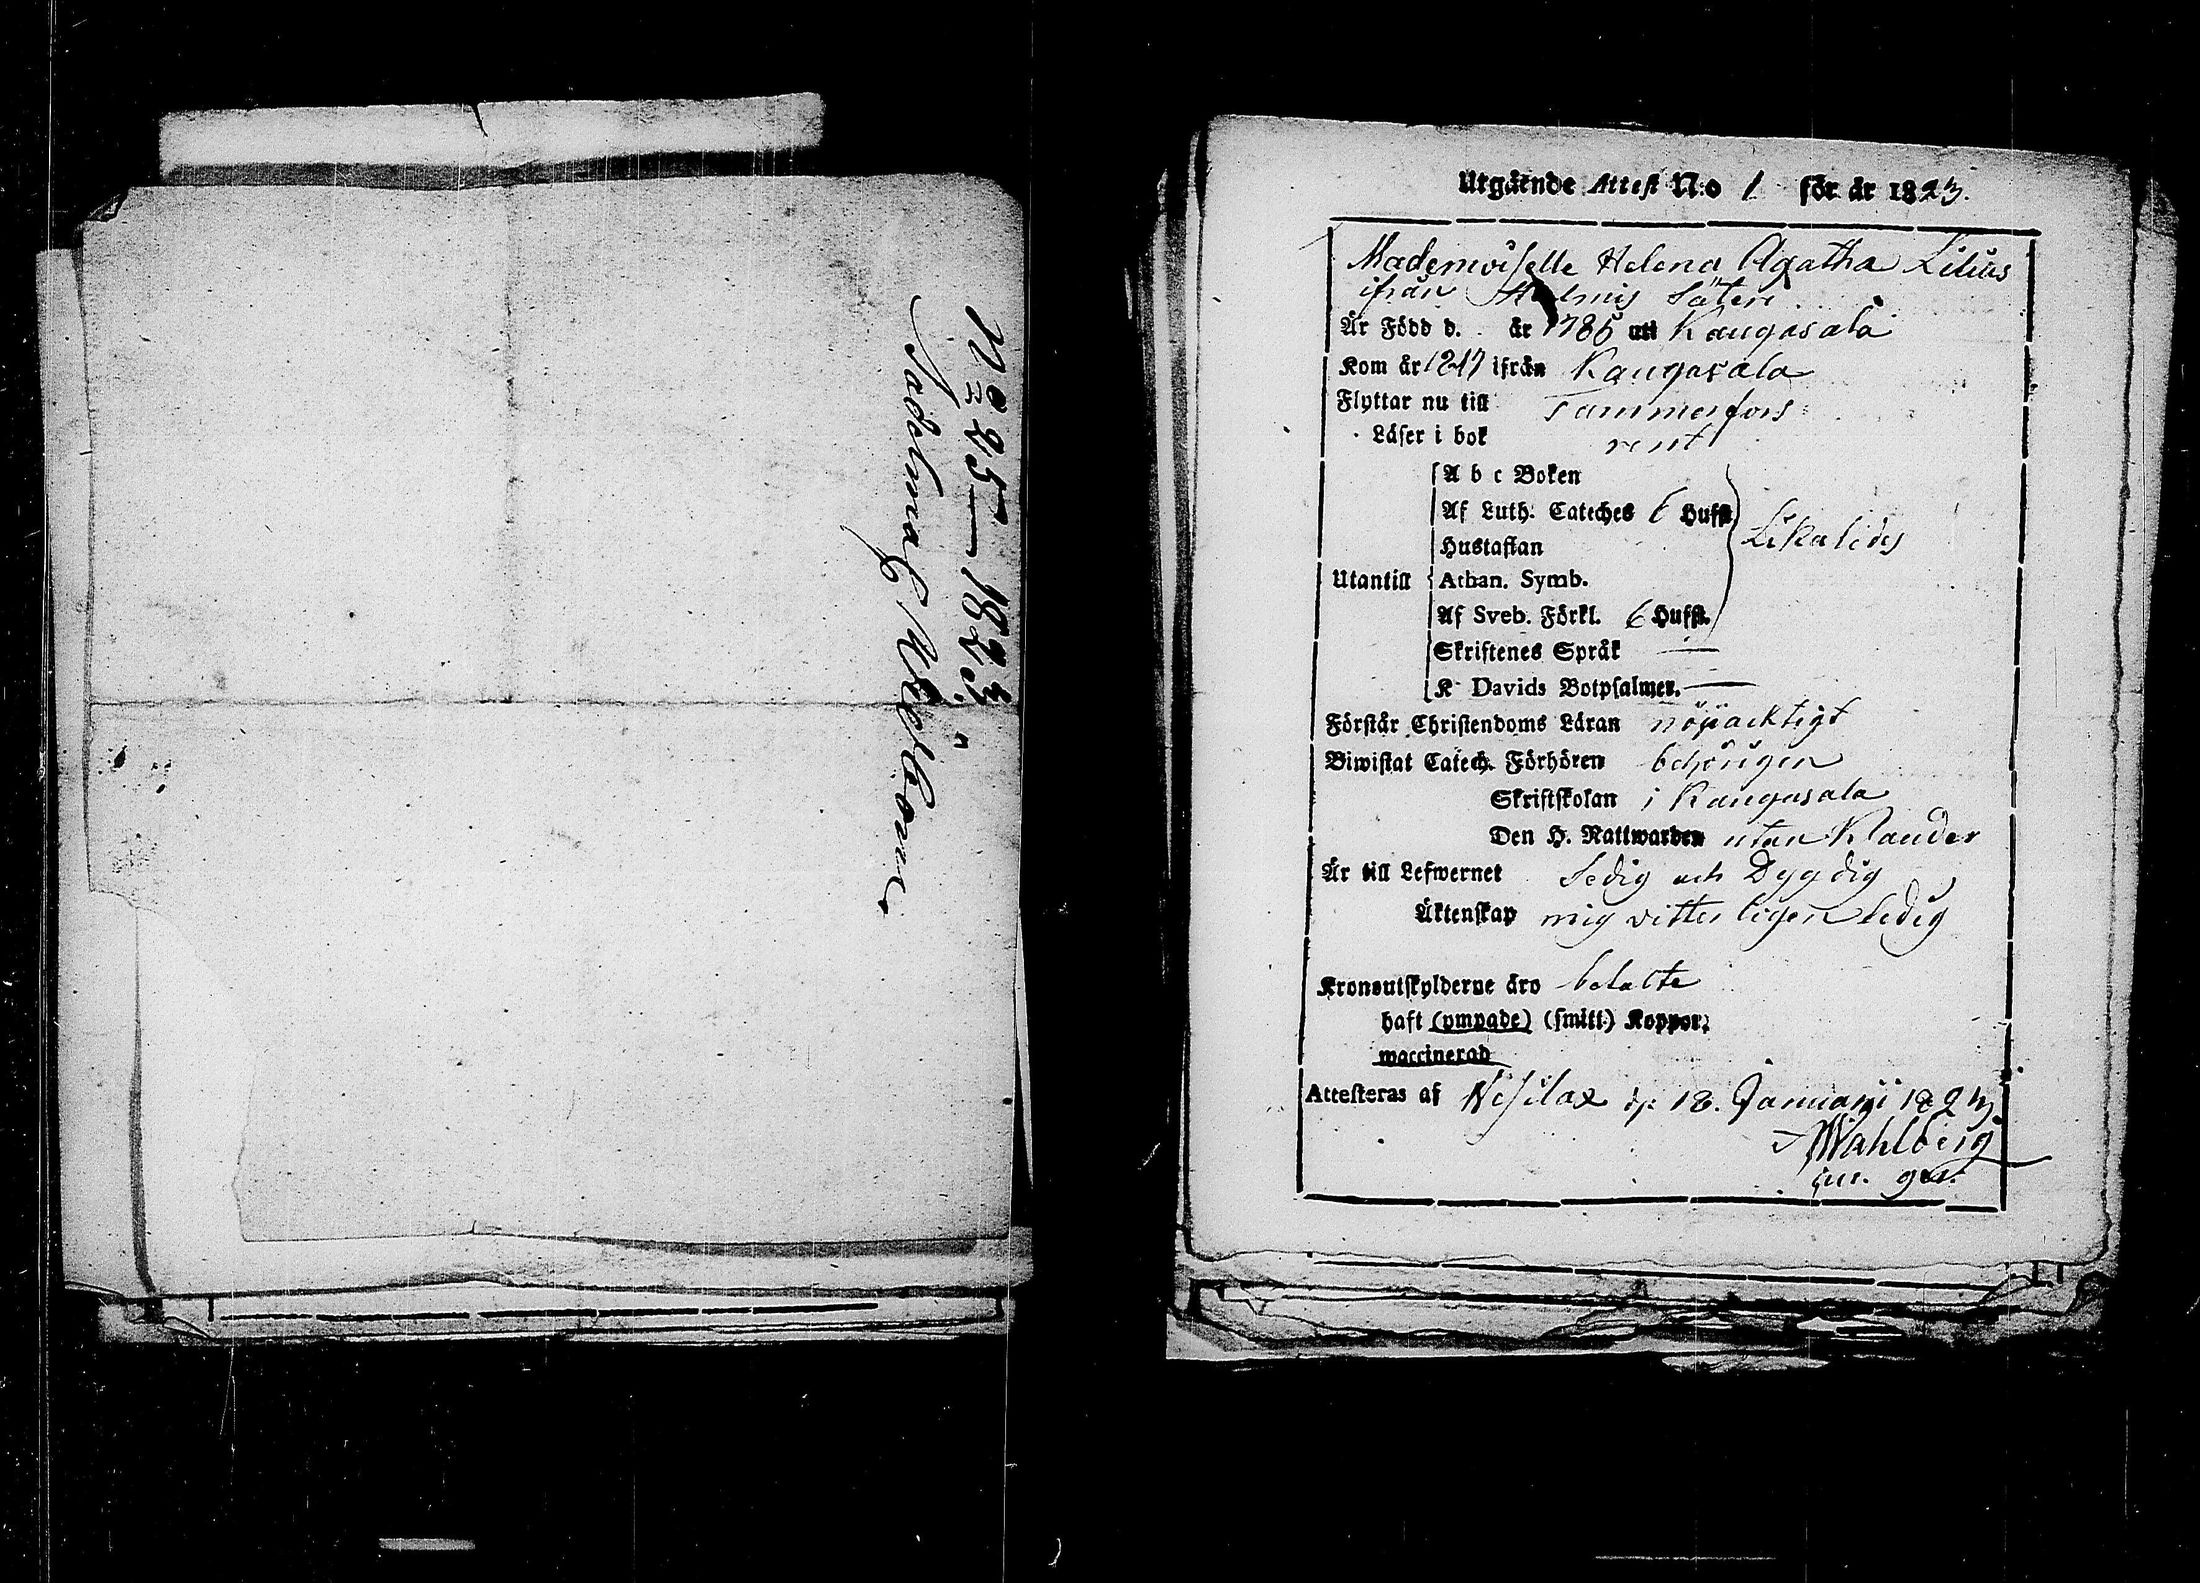 No 25 — 1823
Sadelmak Wetterbom
Utgående Attest N:o 1 för år 1823.
Mademoiselle Helena Agatha Lilius
ifrån Säteri
År Född d. år 1786 uti Kangasala
Kom år 1817 ifrån Kangasala
Flyttar nu till Tammerfors
Läser i bok rent
A b c Boken
Af Luth. Cateches 6 Hufst. Likaledes
Hustaflan
Utantill Athan. Symb.
Af Sveb. Förkl. 6 Hufst.
Skriftenes Språk —
K Davids Botpsalmer. —
Förstår Christendoms Läran nöjacktigt
Biwistat Catech. Förhören behörigen
Skriftskolan i Kangasala
Den H. Nattwarden utan Klander
Är till Lefwernet Sedig och Dygdig
Äktenskap mig vitterligen ledig
Kronoutskylderne äro betalte
haft (ympade) (smitt.) Koppor,
waccinerad
Attesteras af Wesilax d. 18. Januarii 1823.
Wahlberg